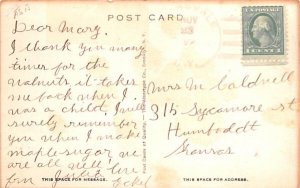 POST CARD
Dear Mary,
I thank you many
times for the
walnuts it takes
me back when I
was a child, I will
surely remember
you when I make
maple-sugar we
are all well.
Mrs M Caldwell
315 Sycamore St
Humboldt
Kansas
THIS SPACE FOR MESSAGE.
THIS SPACE FOR ADDRESS.
1 CENT 1